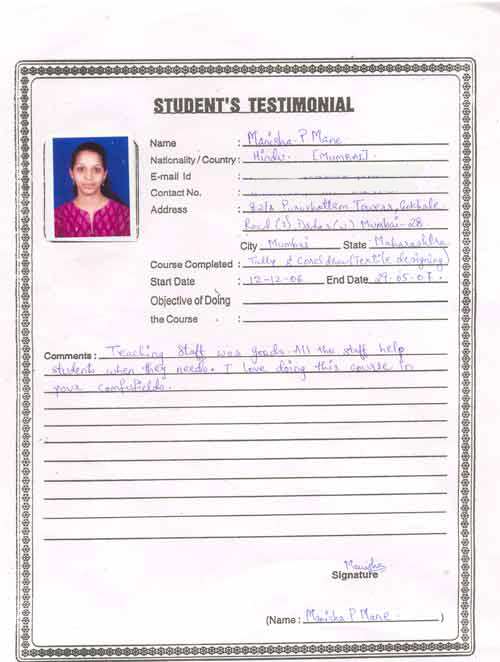 STUDENT'S TESTIMONIAL
Name : Manisha P Mane
Nationality / Country : Hindu [Mumbai].
E-mail Id :
Contact No. :
Address : Purushottam Towers, Gokhale
Road (S), Dadar (W) Mumbai-28
City Mumbai State Maharashtra
Course Completed : Tally & CorelDraw (Textile designing)
Start Date : 12-12-06 End Date 29.05.07.
Objective of Doing
the Course :
Comments : Teaching Staff was goods. All the staff help
students when they needs. I love doing this course in
your compufields.
Manisha
Signature
(Name : Manisha P Mane. )